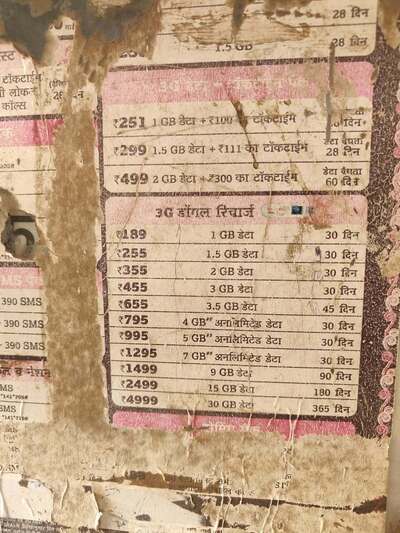 28 दिन
1.5 GB
28 दिन
स्ट
टॉकटाईम
नी लोकल
कॉल्स
₹251 1 GB डेटा + ₹100 का टॉकटाईम
₹299 1.5 GB डेटा + ₹111 का टॉकटाईम
डेटा वैधता
28 दिन
₹499 2 GB डेटा + ₹300 का टॉकटाईम
डेटा वैधता
60 दिन
3G डोंगल रिचार्ज
₹189 1 GB डेटा 30 दिन
₹255 1.5 GB डेटा 30 दिन
₹355 2 GB डेटा 30 दिन
₹455 3 GB डेटा 30 दिन
₹655 3.5 GB डेटा 45 दिन
₹795 4 GB** अनलिमिटेड डेटा 30 दिन
₹995 5 GB** अनलिमिटेड डेटा 30 दिन
₹1295 7 GB** अनलिमिटेड डेटा 30 दिन
₹1499 9 GB डेटा 90 दिन
₹2499 15 GB डेटा 180 दिन
₹4999 30 GB डेटा 365 दिन
5
390 SMS
390 SMS
390 SMS
ल व नॅशन
SMS
*141*2158#
SMS
*141*7158#